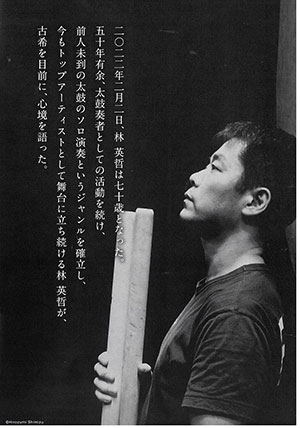 二〇二二年二月二日、林 英哲は七十歳となった。
五十年有余、太鼓奏者としての活動を続け、
前人未到の太鼓のソロ演奏というジャンルを確立し、
今もトップアーティストとして舞台に立ち続ける林 英哲が、
古希を目前に、心境を語った。
©Hirozumi Shimizu